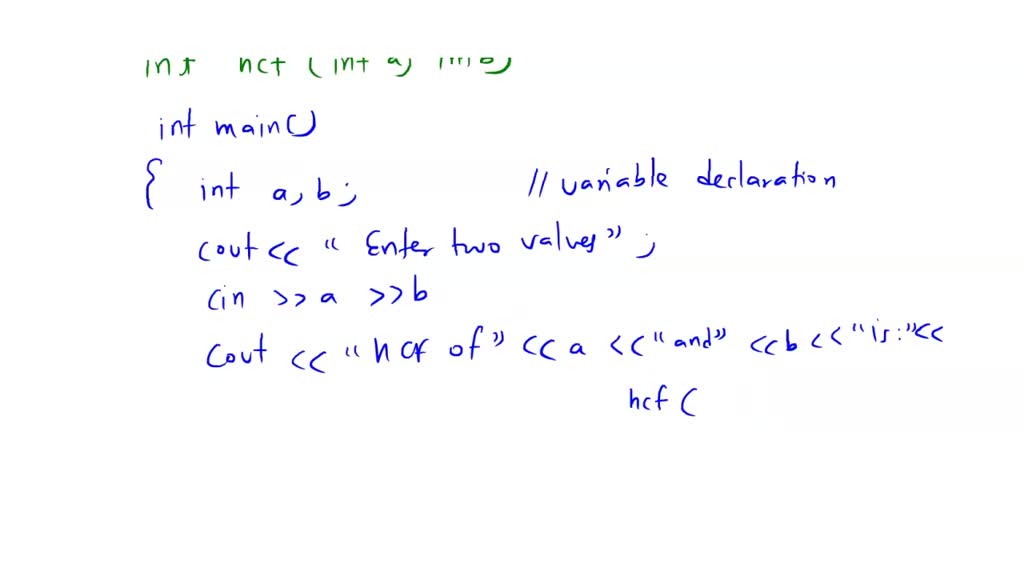 int hcf (int a, int b)
int main()
{ int a, b; // variable declaration
cout << " Enter two values" ;
cin >> a >> b
cout << "hcf of" << a << "and" << b << "is:" <<
hcf (